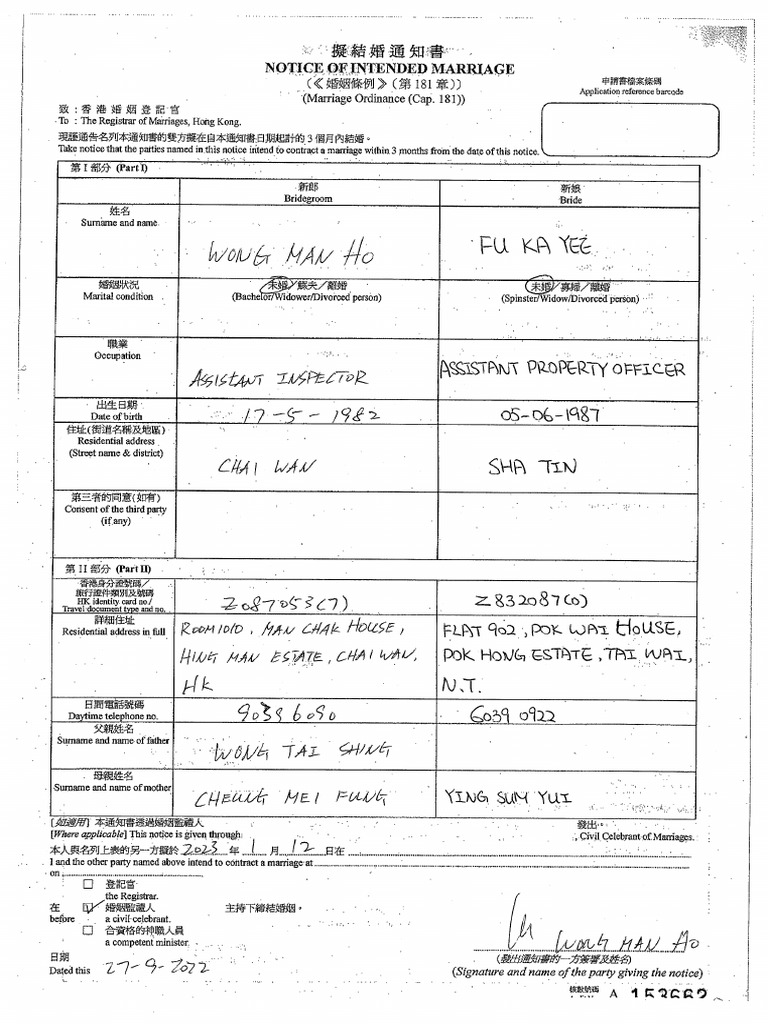 擬結婚通知書
NOTICE OF INTENDED MARRIAGE
(《婚姻條例》(第 181 章))
(Marriage Ordinance (Cap. 181))
申請書檔案條碼
Application reference barcode
致：香港婚姻登記官
To : The Registrar of Marriages, Hong Kong.
現謹通告名列本通知書的雙方擬在自本通知書日期起計的 3 個月內結婚。
Take notice that the parties named in this notice intend to contract a marriage within 3 months from the date of this notice.
第 I 部分 (Part I)
新郎 新娘
Bridegroom Bride
姓名
Surname and name
WONG MAN HO FU KA YEE
婚姻狀況 未婚/鰥夫/離婚 未婚/寡婦/離婚
Marital condition (Bachelor/Widower/Divorced person) (Spinster/Widow/Divorced person)
職業
Occupation
ASSISTANT INSPECTOR ASSISTANT PROPERTY OFFICER
出生日期
Date of birth 17-5-1982 05-06-1987
住址(街道名稱及地區)
Residential address
(Street name & district)
CHAI WAN SHA TIN
第三者的同意(如有)
Consent of the third party
(if any)
第 II 部分 (Part II)
香港身分證號碼/
旅行證件類別及號碼
HK identity card no./
Travel document type and no.
Z087053(7) Z832087(0)
詳細住址
Residential address in full
ROOM1010, MAN CHAK HOUSE, FLAT 902, POK WAI HOUSE,
HING MAN ESTATE, CHAI WAN, POK HONG ESTATE, TAI WAI,
HK N.T.
日間電話號碼
Daytime telephone no. 9039 6090 6039 0922
父親姓名
Surname and name of father
WONG TAI SHING
母親姓名
Surname and name of mother
CHEUNG MEI FUNG YING SUM YUI
[如適用] 本通知書透過婚姻監禮人 發出
[Where applicable] This notice is given through , Civil Celebrant of Marriages.
本人與名列上表的另一方擬於 2023 年 1 月 12 日在
I and the other party named above intend to contract a marriage at
on
登記官
the Registrar.
在 婚姻監禮人 主持下締結婚姻。
before a civil celebrant.
合資格的神職人員
a competent minister.
WONG MAN HO
日期 (發出通知書的一方簽署及姓名)
Dated this 27-9-2022 (Signature and name of the party giving the notice)
A 153662